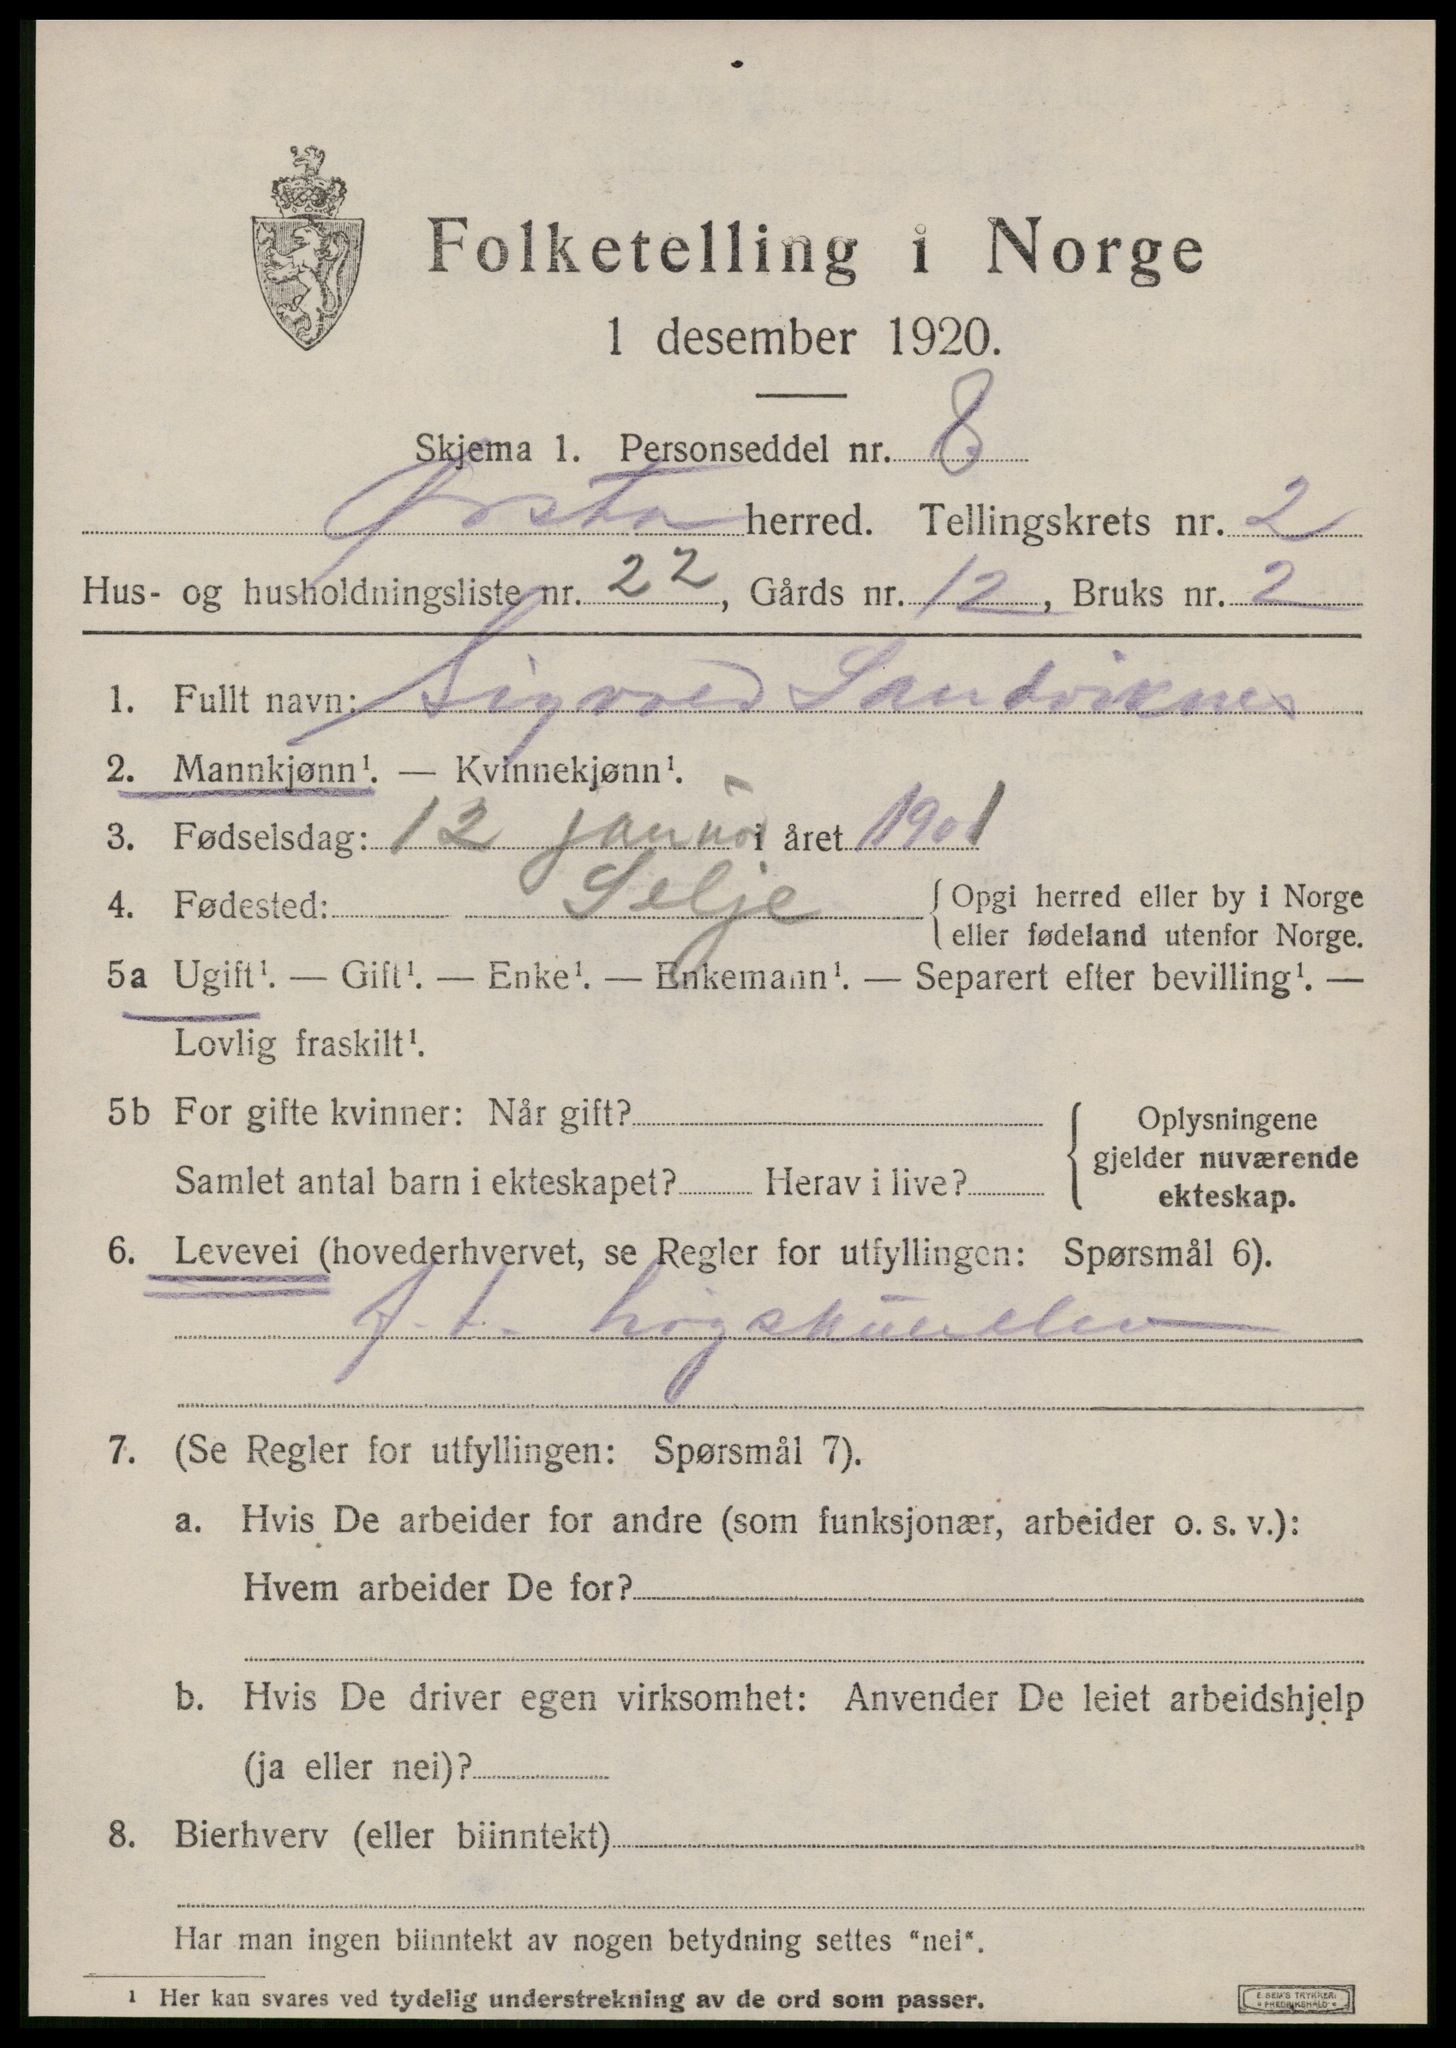 Folketelling i Norge
1 desember 1920.
Skjema 1. Personseddel nr. 8
Ørsta herred. Tellingskrets nr. 2
Hus- og husholdningsliste nr. 22, Gårds nr. 12, Bruks nr. 2
1. Fullt navn: Sigvald Sandviknes
2. Mannkjønn¹. — Kvinnekjønn¹.
3. Fødselsdag: 12 januar i året 1901
4. Fødested: Selje { Opgi herred eller by i Norge
eller fødeland utenfor Norge.
5a Ugift¹. — Gift¹. — Enke¹. — Enkemann¹. — Separert efter bevilling¹. —
Lovlig fraskilt¹.
5b For gifte kvinner: Når gift?
Samlet antal barn i ekteskapet? Herav i live?
{ Oplysningene
gjelder nuværende
ekteskap.
6. Levevei (hovederhvervet, se Regler for utfyllingen: Spørsmål 6).
f. t. høgskuleelev
7. (Se Regler for utfyllingen: Spørsmål 7).
a. Hvis De arbeider for andre (som funksjonær, arbeider o. s. v.):
Hvem arbeider De for?
b. Hvis De driver egen virksomhet: Anvender De leiet arbeidshjelp
(ja eller nei)?
8. Bierhverv (eller biinntekt)
Har man ingen biinntekt av nogen betydning settes "nei".
¹ Her kan svares ved tydelig understrekning av de ord som passer.
E. SEM'S TRYKKERI
FREDRIKSHALD